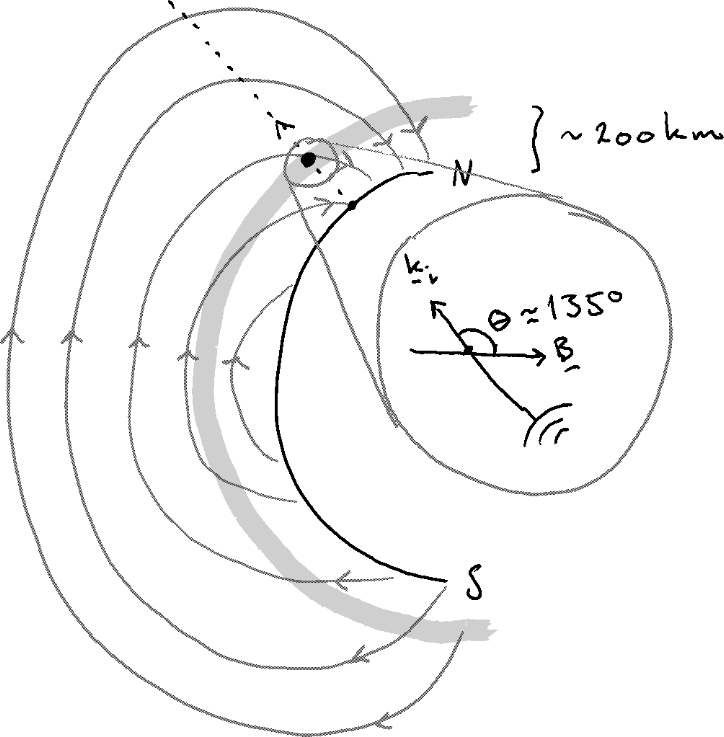 ~200km
N
k_i
θ≈135°
B
S